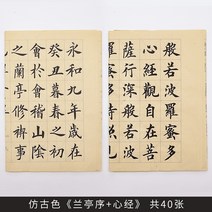 永和九年歲在
癸丑暮春之初
會於會稽山陰
之蘭亭修禊事
般若波羅蜜多
心經觀自在菩
薩行深般若波
仿古色《兰亭序+心经》 共40张